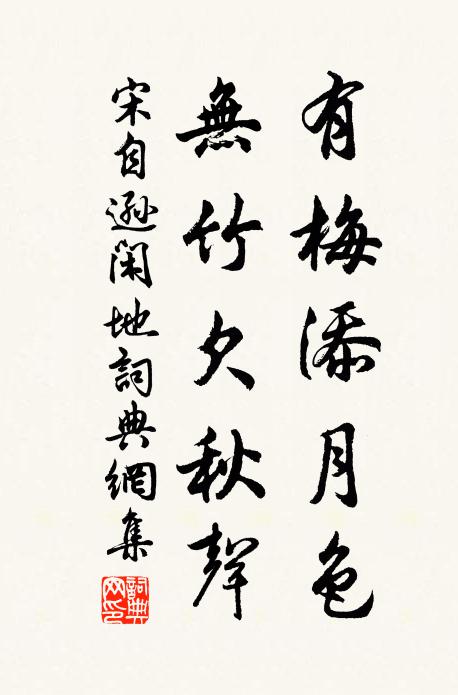 有梅添月色
無竹欠秋聲
宋自遜閑地詞典網集
詞典網印